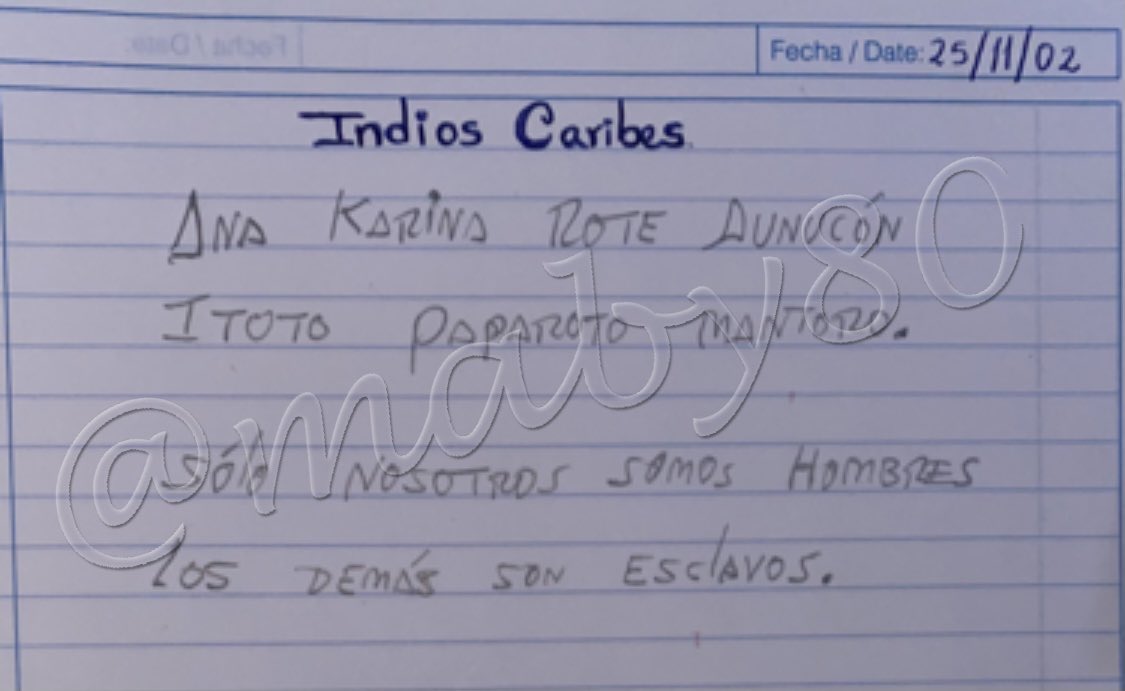 Fecha / Date: 25/11/02
Indios Caribes
ANA KARINA ROTE AUNUCÓN
ITOTO PAPAROTO MANTORO.
SÓlO NOSOTROS SOMOS HOMBRES
LOS DEMÁS SON ESClAVOS.
@maby80